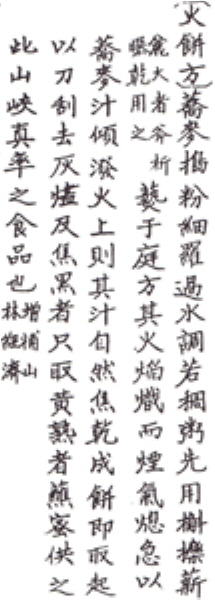 (火餅方)蕎麥搗粉細羅過水調若稠粥先用槲櫟薪
麄大者斧析
乾用之
爇于庭方其火焰熾而煙氣熄急以
蕎麥汁傾潑火上則其汁自然焦乾成餅即取起
以刀刮去灰燼及焦黑者只取黃熟者蘸蜜供之
此山峽真率之食品也
增補山
林經濟